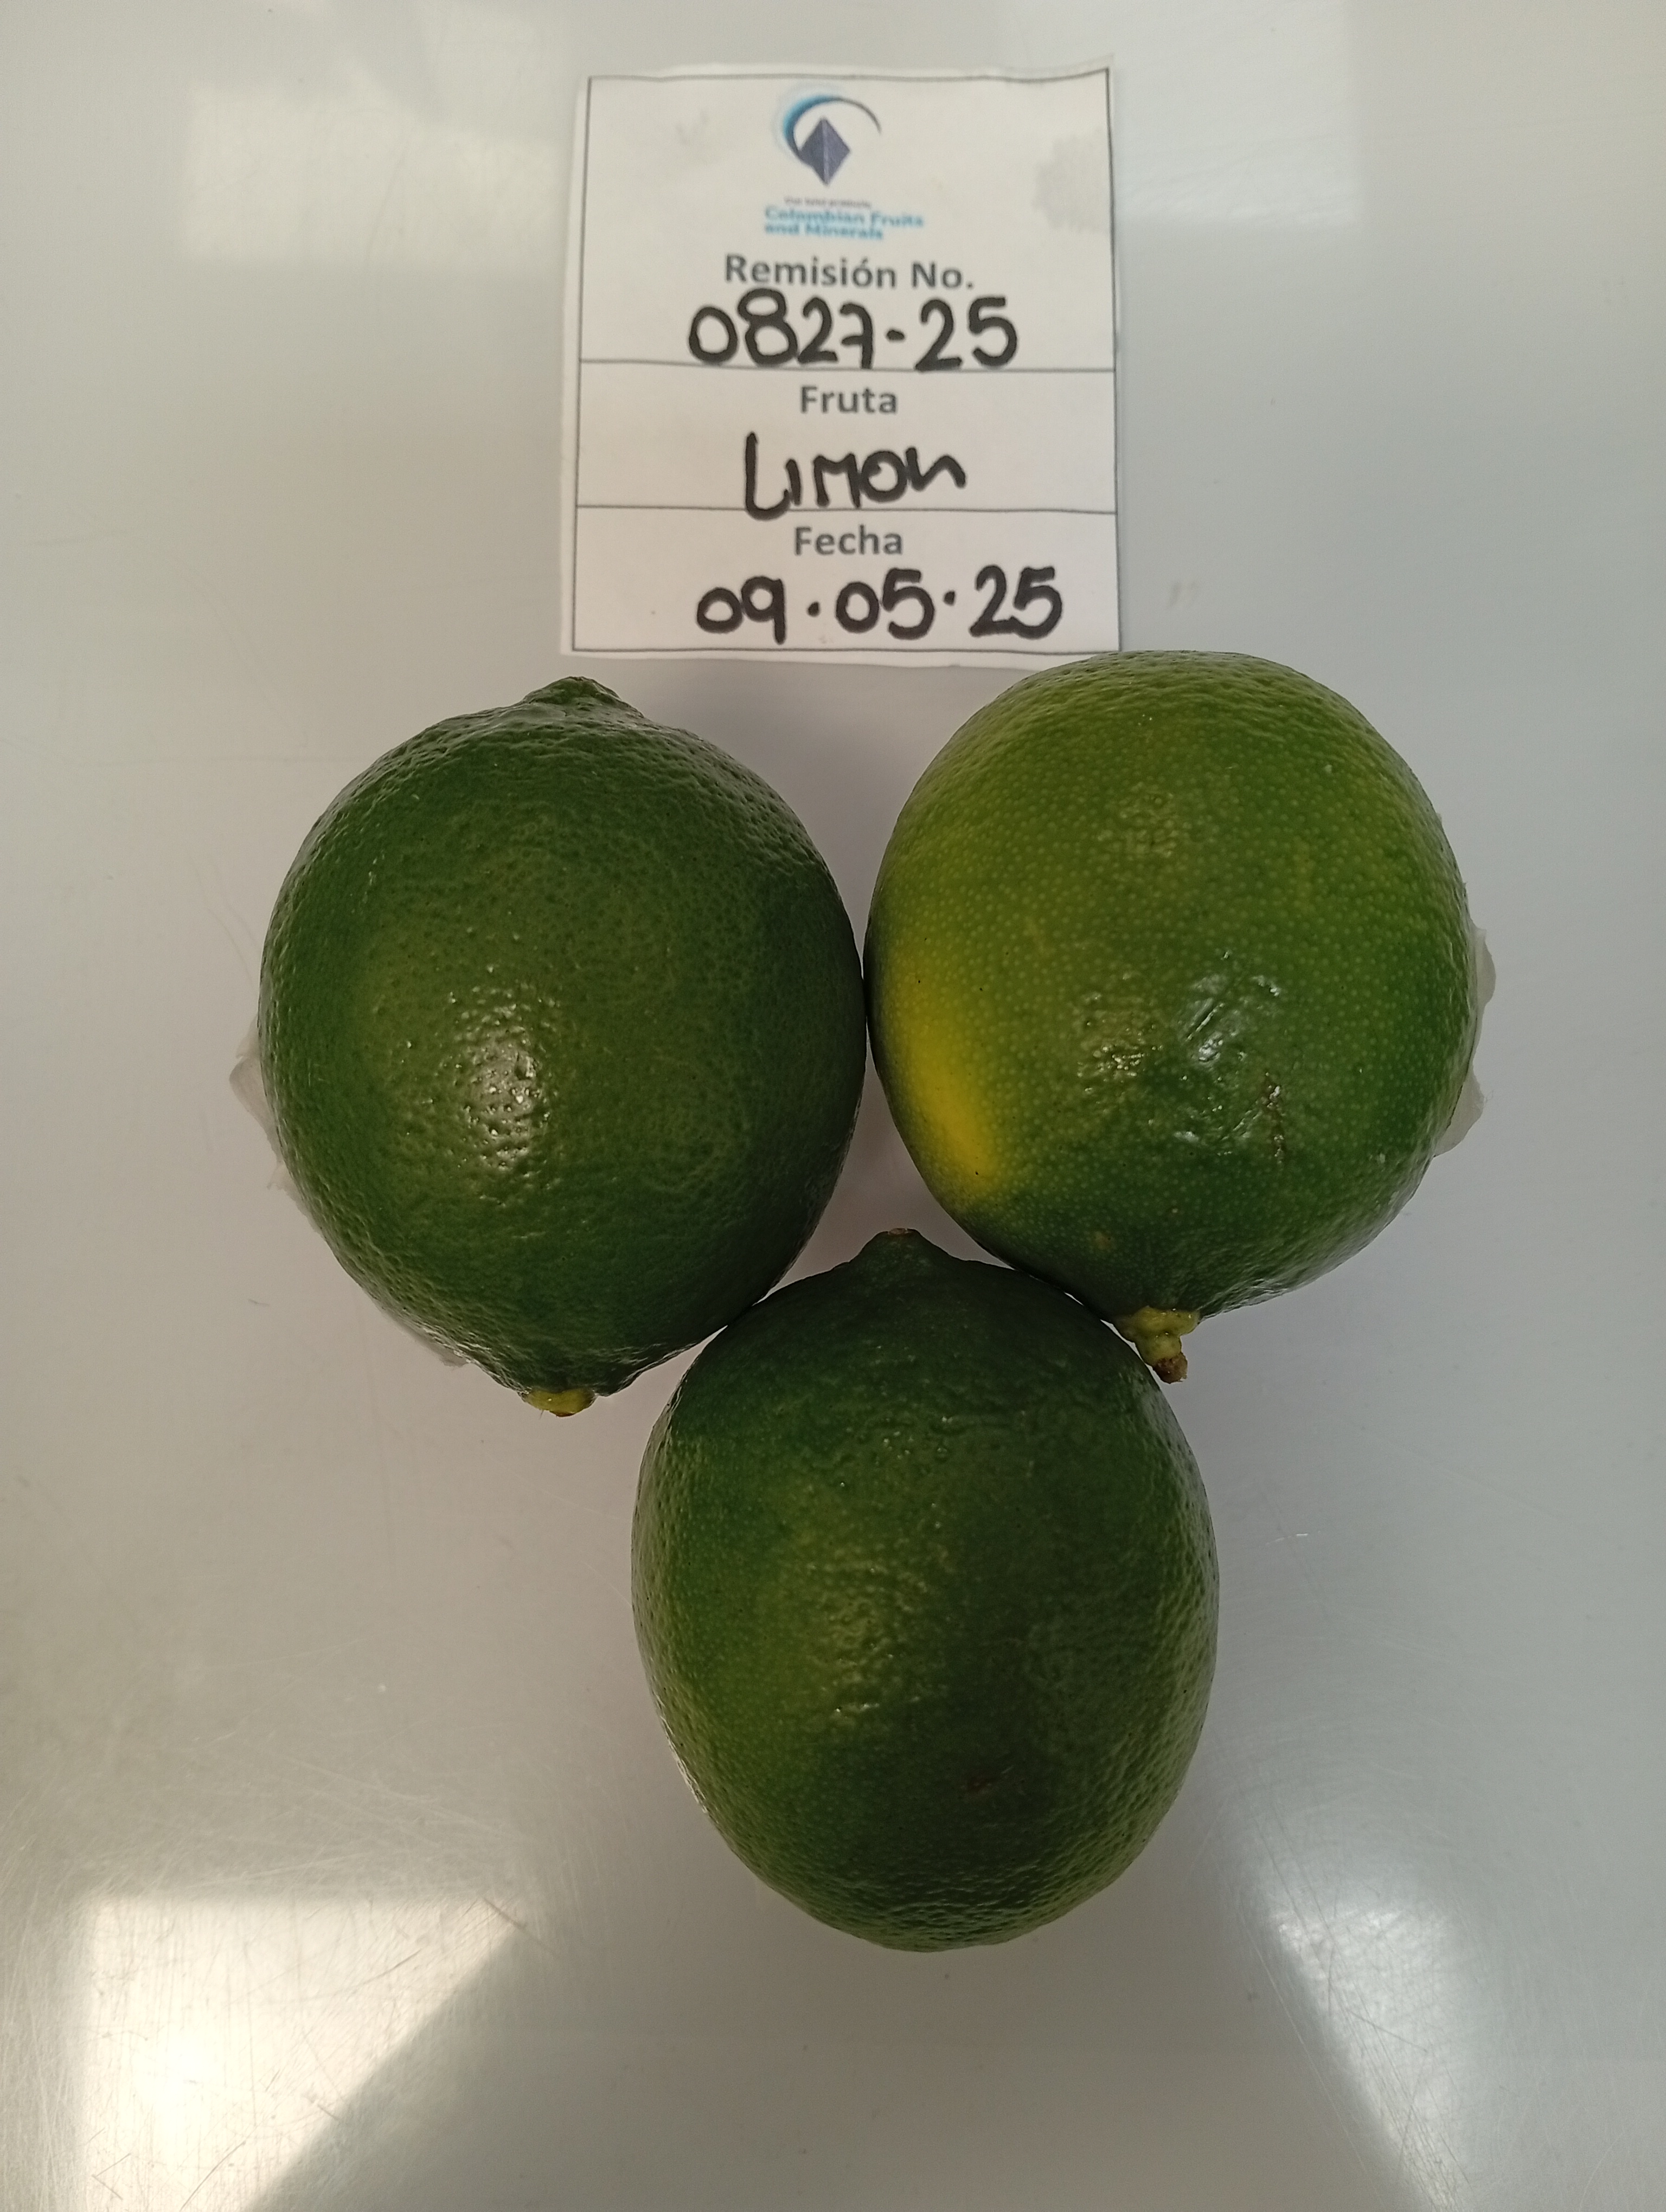 Colombian Fruits
and Minerals
Remisión No.
0827-25
Fruta
Limon
Fecha
09.05.25